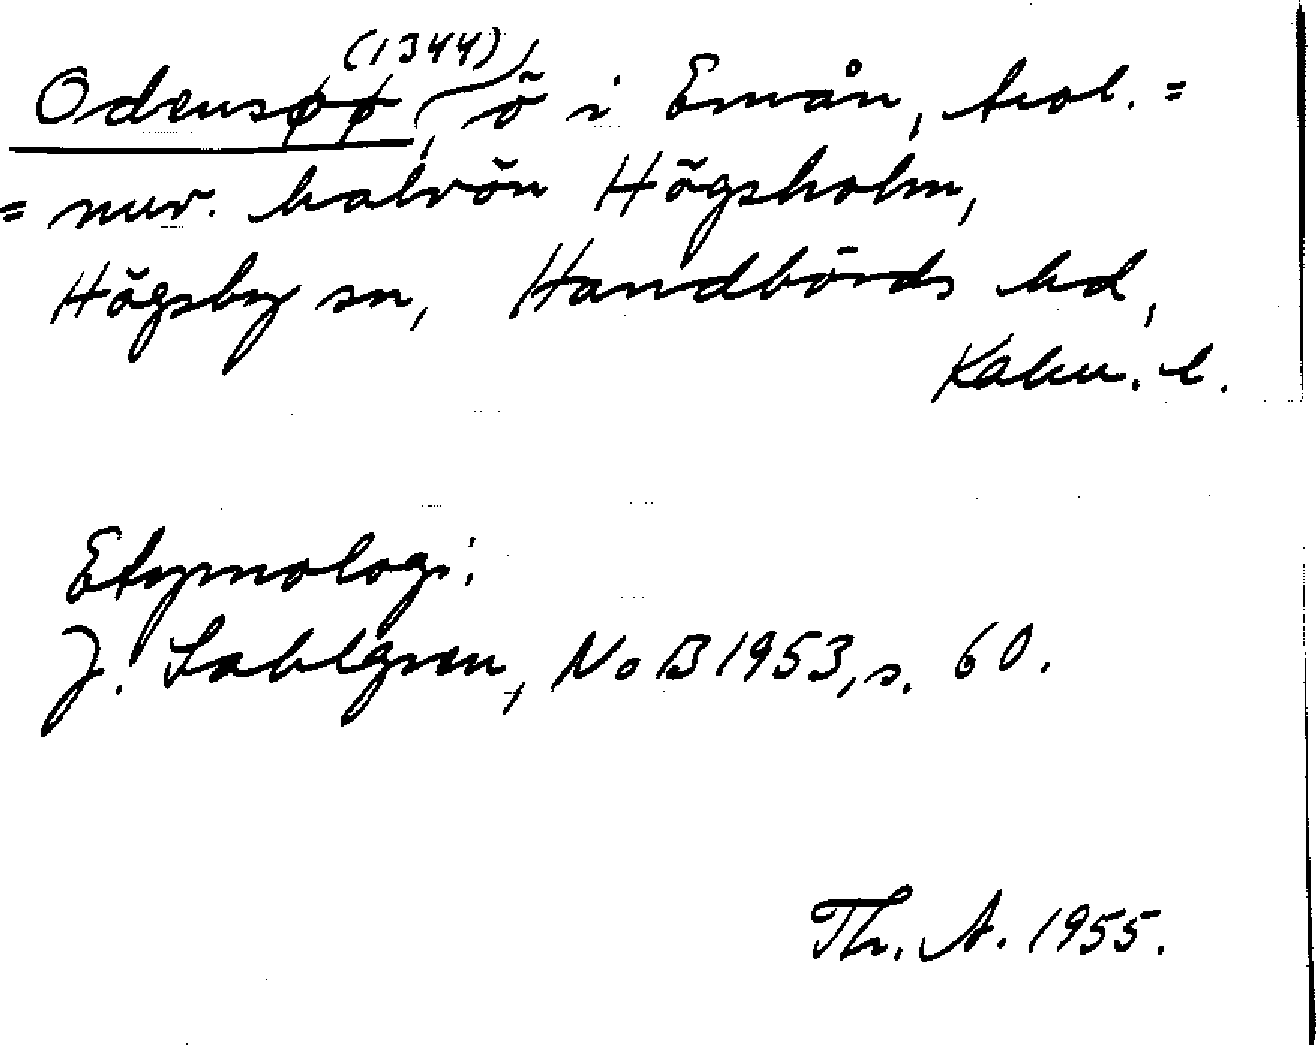 Odensøø (1344), ö i Emån, trol. =
= nuv. halvön Högsholm,
Högsby sn, Handbörds hd,
Kalm. l.
Etymologi:
J. Sahlgren, NoB 1953, s. 60.
Th. A. 1955.